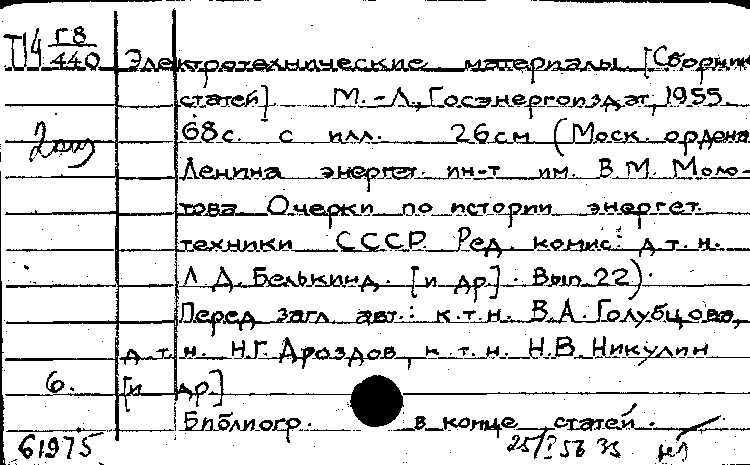 П14 Г8/440 Электротехнические материалы [Сборник
статей] М.-Л., Госэнергоиздат, 1955.
68с. с илл. 26см (Моск. ордена
2 экз
Ленина энергет. ин-т им. В.М. Моло-
това Очерки по истории энергет.
техники СССР. Ред. комис: д.т.н.
Л.Д. Белькинд. [и др.]. Вып. 22).
Перед загл. авт.: к.т.н. В.А. Голубцова,
д.т.н. Н.Г. Дроздов, к.т.н. Н.В. Никулин
6. [и др.]
Библиогр. в конце статей.
61975